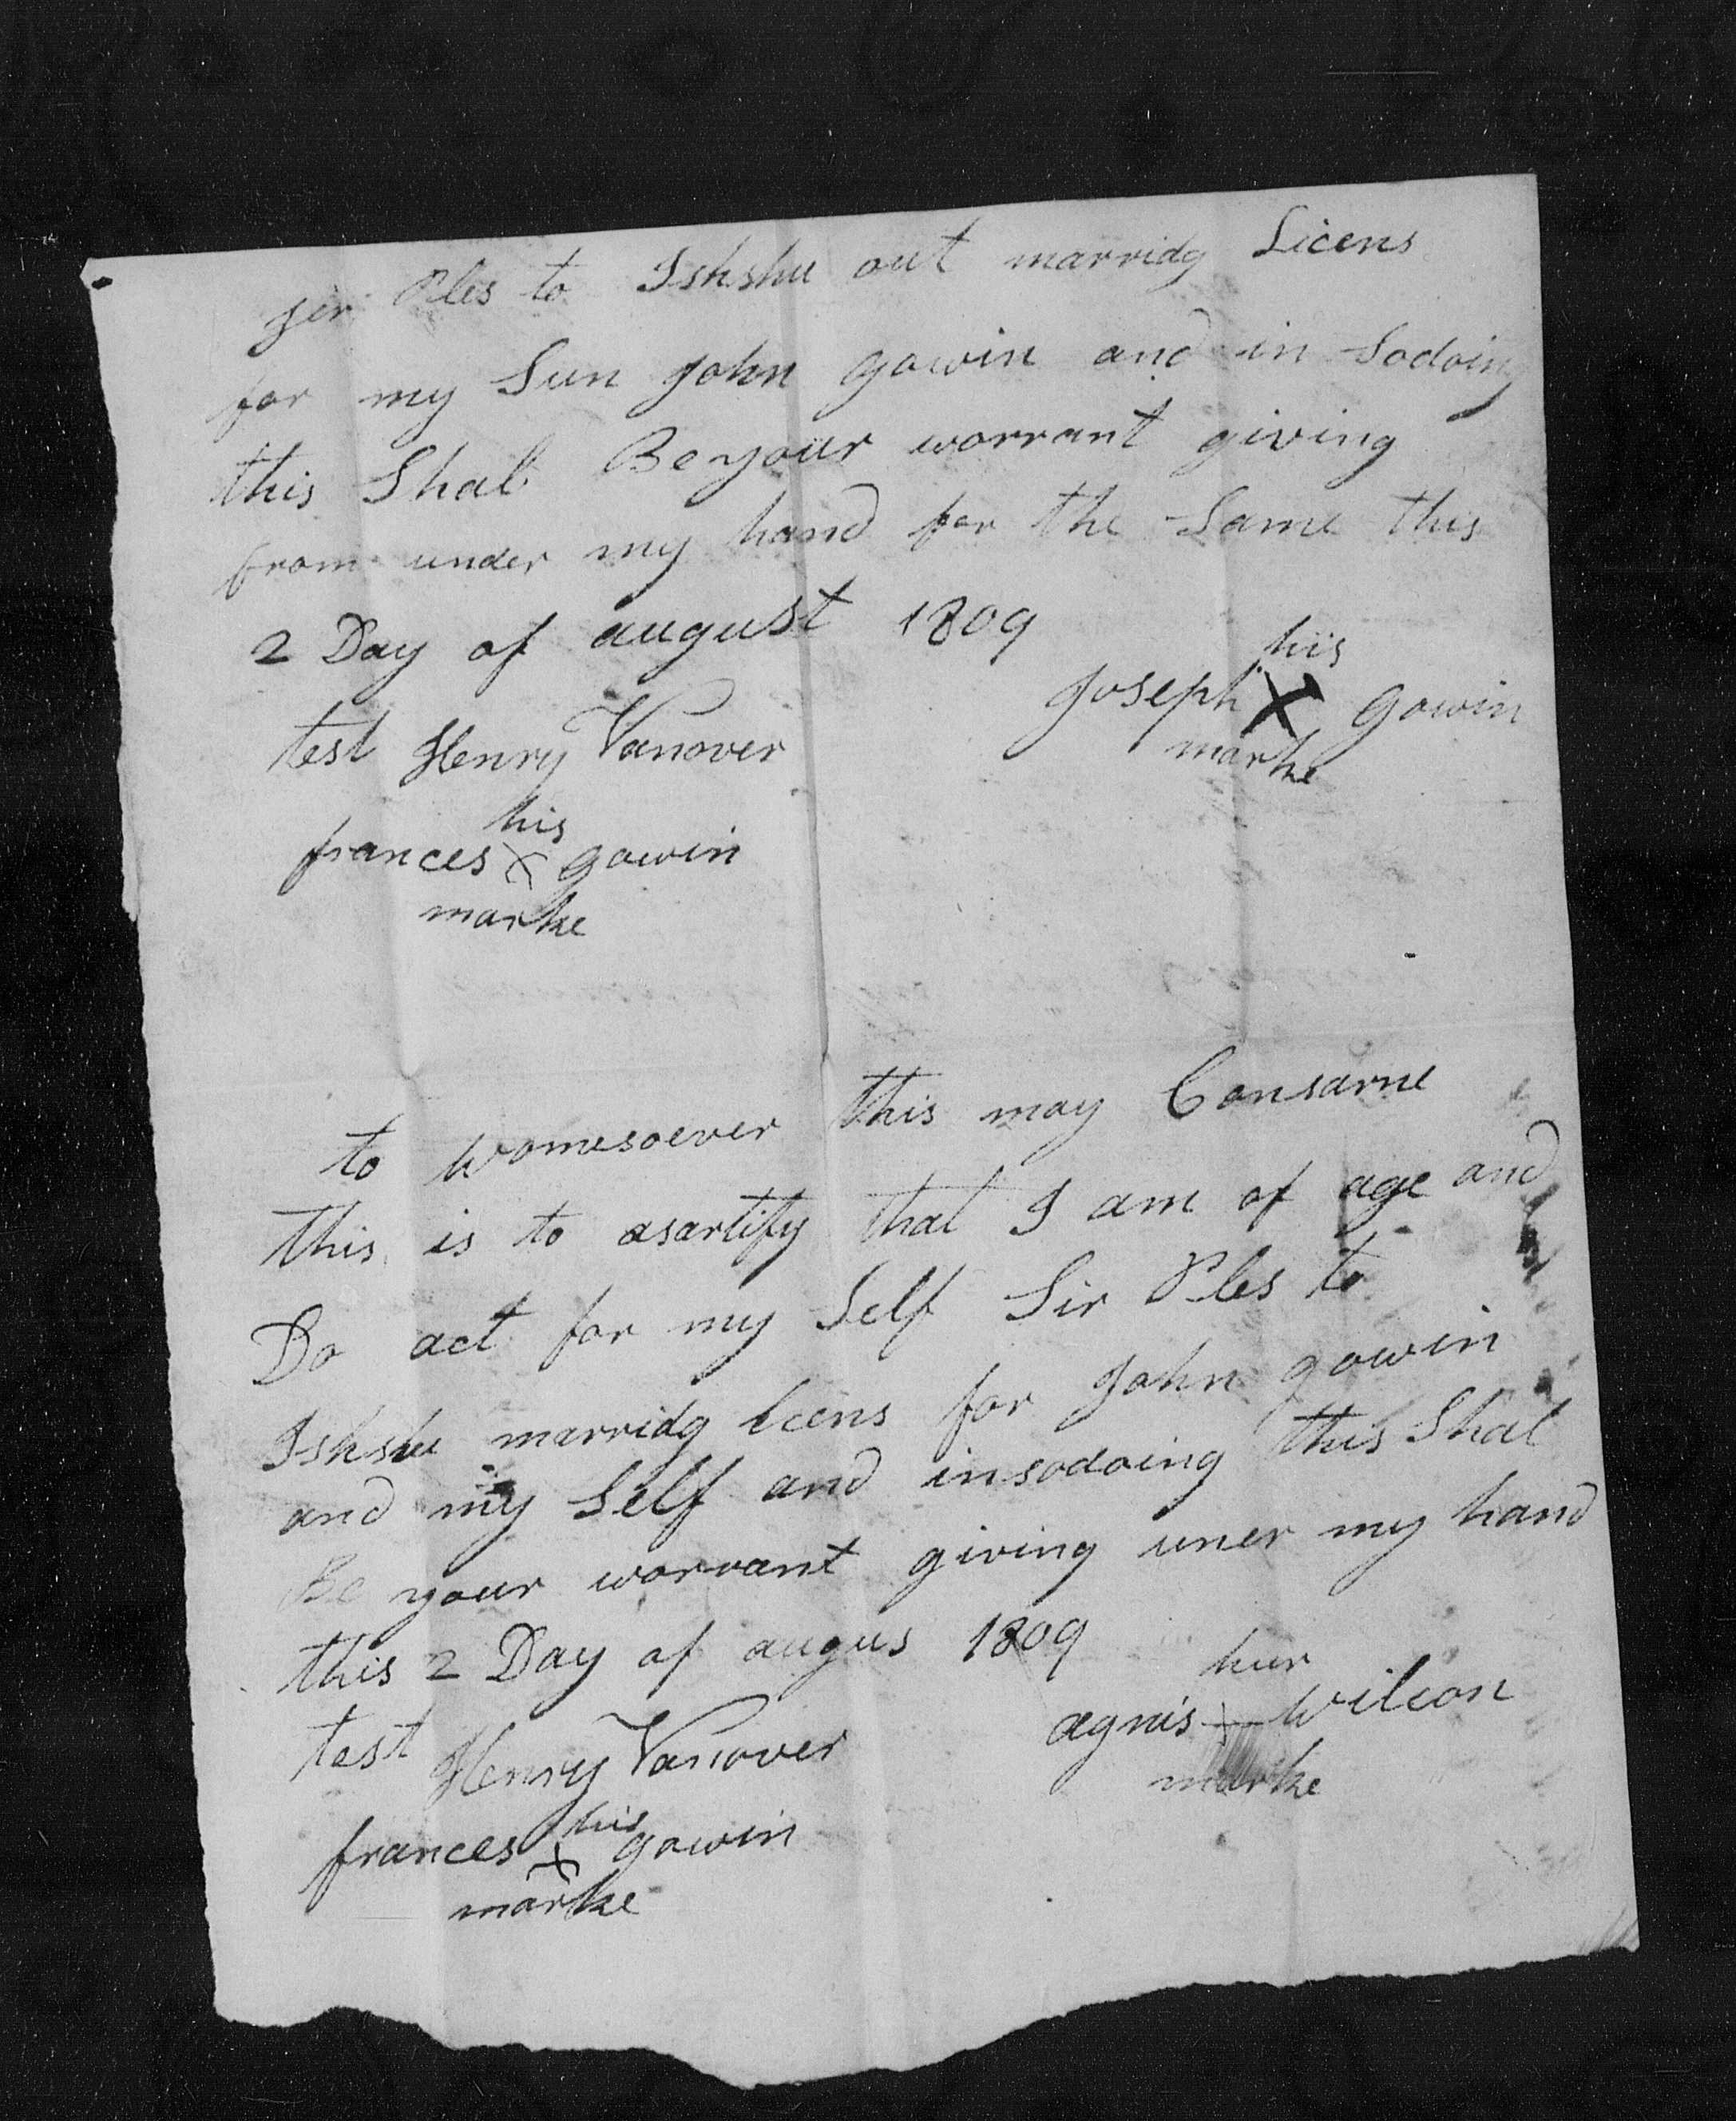 ser Ples to Ishshu out marridg Licens
for my Sun John gowin and in Sodoing
this Shal Be your worrant giving
from under my hand for the Same this
2 Day of august 1809
his
Joseph X gowin
marke
test Henry Vanover
his
frances X gowin
marke
to womesoever this may Consarne
this is to asartify that I am of age and
Do act for my Self Sir Ples to
Ishshu marridg licens for John gowin
and my Self and insodoing this Shal
Be your worrant giving uner my hand
this 2 Day of augus 1809
hur
agnis X wilson
marke
test Henry Vanover
his
frances X gowin
marke